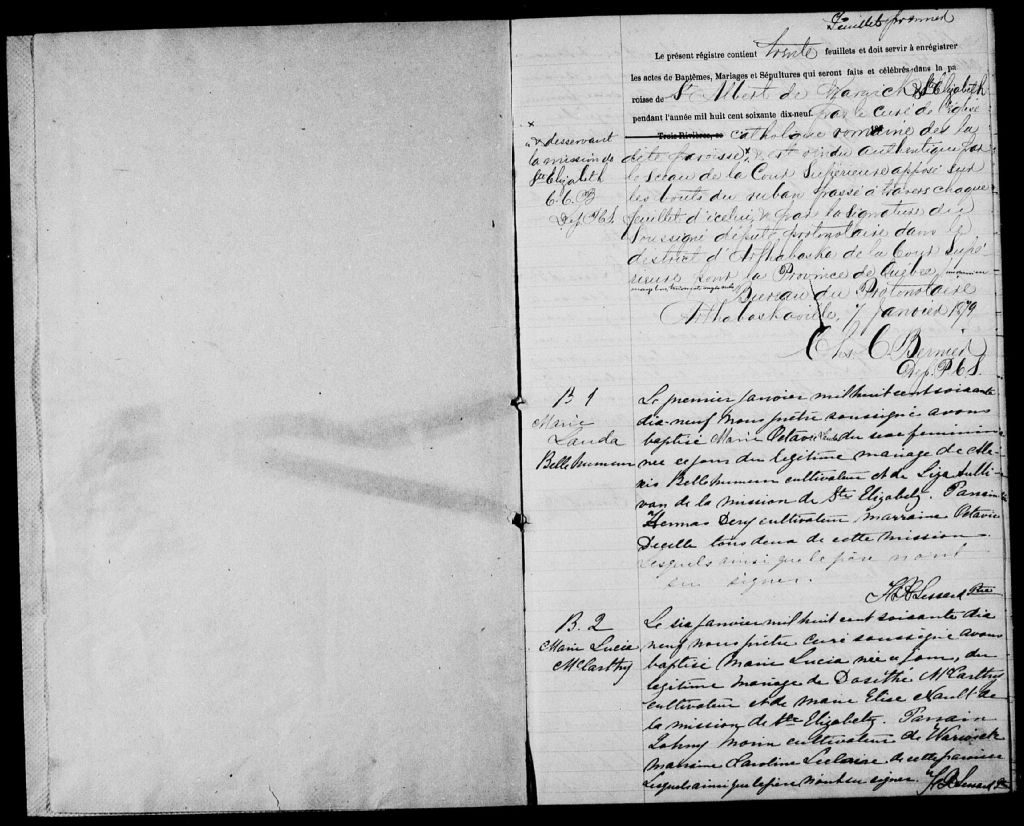 Feuillet premier
Le présent régistre contient trente feuillets et doit servir à enrégistrer
les actes de Baptêmes, Mariages et Sépultures qui seront faits et célébrés dans la pa
roisse de St Albert de Warwick & Ste Elizabeth
pendant l'année mil huit cent soixante dix-neuf. par le curé de l'Eglise
Trois-Rivières, ce catholique romaine des la
dite paroisse, x & est rendu authentique par
le sceau de la Cour Supérieure apposé sur
les bouts du ruban passé à travers chaque
feuillet d'icelui, & par la signature du
soussigné député protonotaire dans le
district d'Arthabaska de la Cour Supé-
rieure pour la Province de Québec
Bureau du Protonotaire
Arthabaskaville, 7 Janvier 1879
Chs C Bernier
Dép. P. C. S.
x
"& desservant
la mission de
Ste Elizabeth
C. C. B
Dép. P. C. S.
B. 1
Marie
Lauda
Bellehumeur
Le premier janvier mil huit cent soixante
dix-neuf nous prêtre soussigné avons
baptisé Marie Octavie Lauda du sexe feminin
née ce jour du legitime mariage de Ma-
xis Bellehumeur cultivateur et de Liza Sulli-
van de la mission de Ste Elizabeth. Parrain
Hermas Dery cultivateur, marraine Octavie
Decelle tous deux de cette mission
Lesquels ainsi que le père n'ont
su signer.
Lessard Ptre
B. 2
Marie Lucia
McCarthy
Le six janvier mil huit cent soixante dix
neuf nous prêtre curé soussigné avons
baptisé Marie Lucia née ce jour, du
legitime mariage de Dosithé McCarthy
cultivateur et de Marie Elise Nault de
la mission de Ste Elizabeth. Parrain
Johny Morin cultivateur de Warwick
marraine Caroline Leclaire de cette paroisse
Lesquels ainsi que le père n'ont su signer.
Lessard Ptre